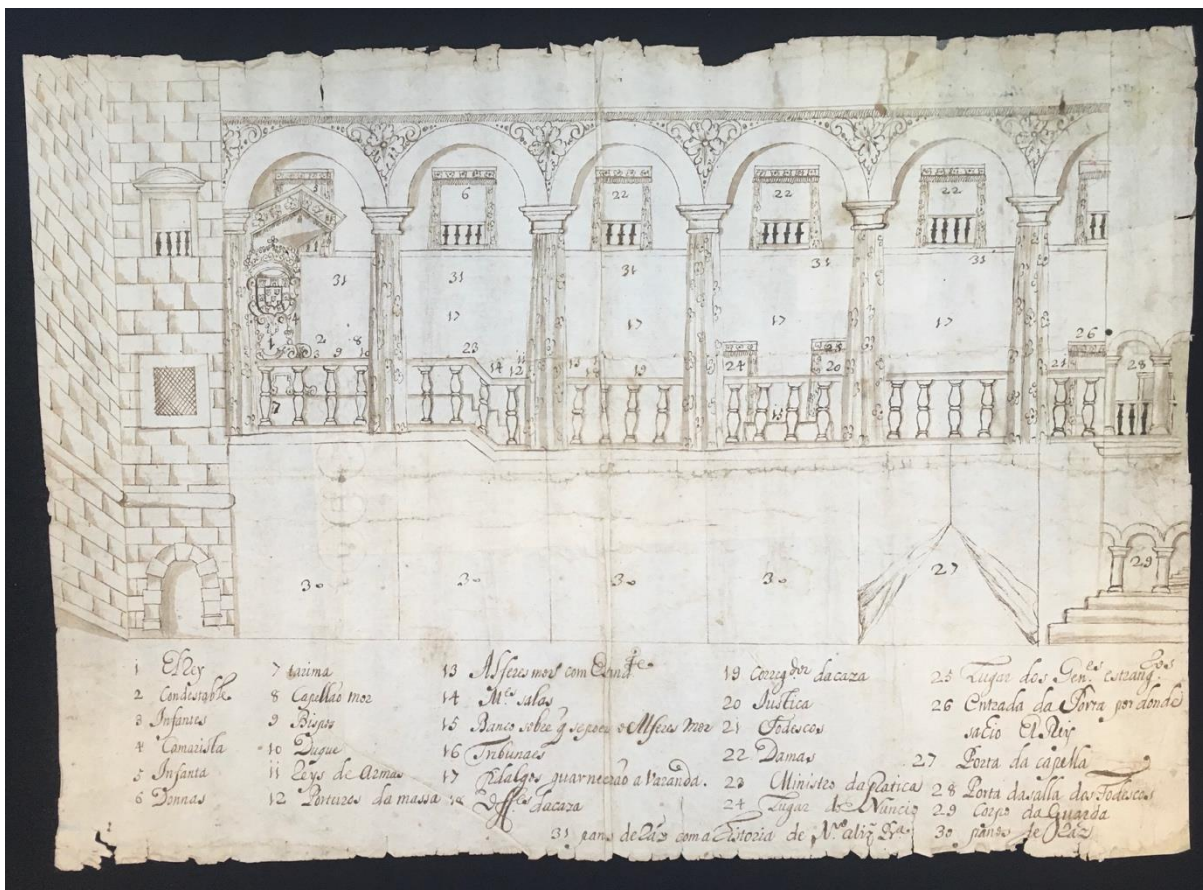 5
6
22
22
22
31
31
31
31
31
4
17
17
17
17
1
2
8
3
9
10
23
14
11
12
13
19
24
20
26
21
28
7
15
30
30
30
30
27
29
1 ElRey
2 Condestable
3 Infantes
4 Camarista
5 Infanta
6 Donnas
7 tarima
8 Capellaõ mor
9 Bispos
10 Duque
11 Reys de Armas
12 Porteiros da massa
13 Alferes mor com
14 M.e salas
15 Banco sobre q̃ se poem o Alferes mor
16 Tribunaes
17 Fidalgos guarneceraõ a Varanda.
18 Off.es dacaza
19 Correg.dor dacaza
20 Justica
21 Todescos
22 Damas
23 Ministro da pratica
24 Lugar do Nuncio
25 Lugar dos Gen.es estrang.ros
26 Entrada da Porta por donde
sacio El Rey
27 Porta da capella
28 Porta dasalla dos Todescos
29 Corpo da Guarda
30 panos de Ràz
31 pans de Ràz com a Historia de